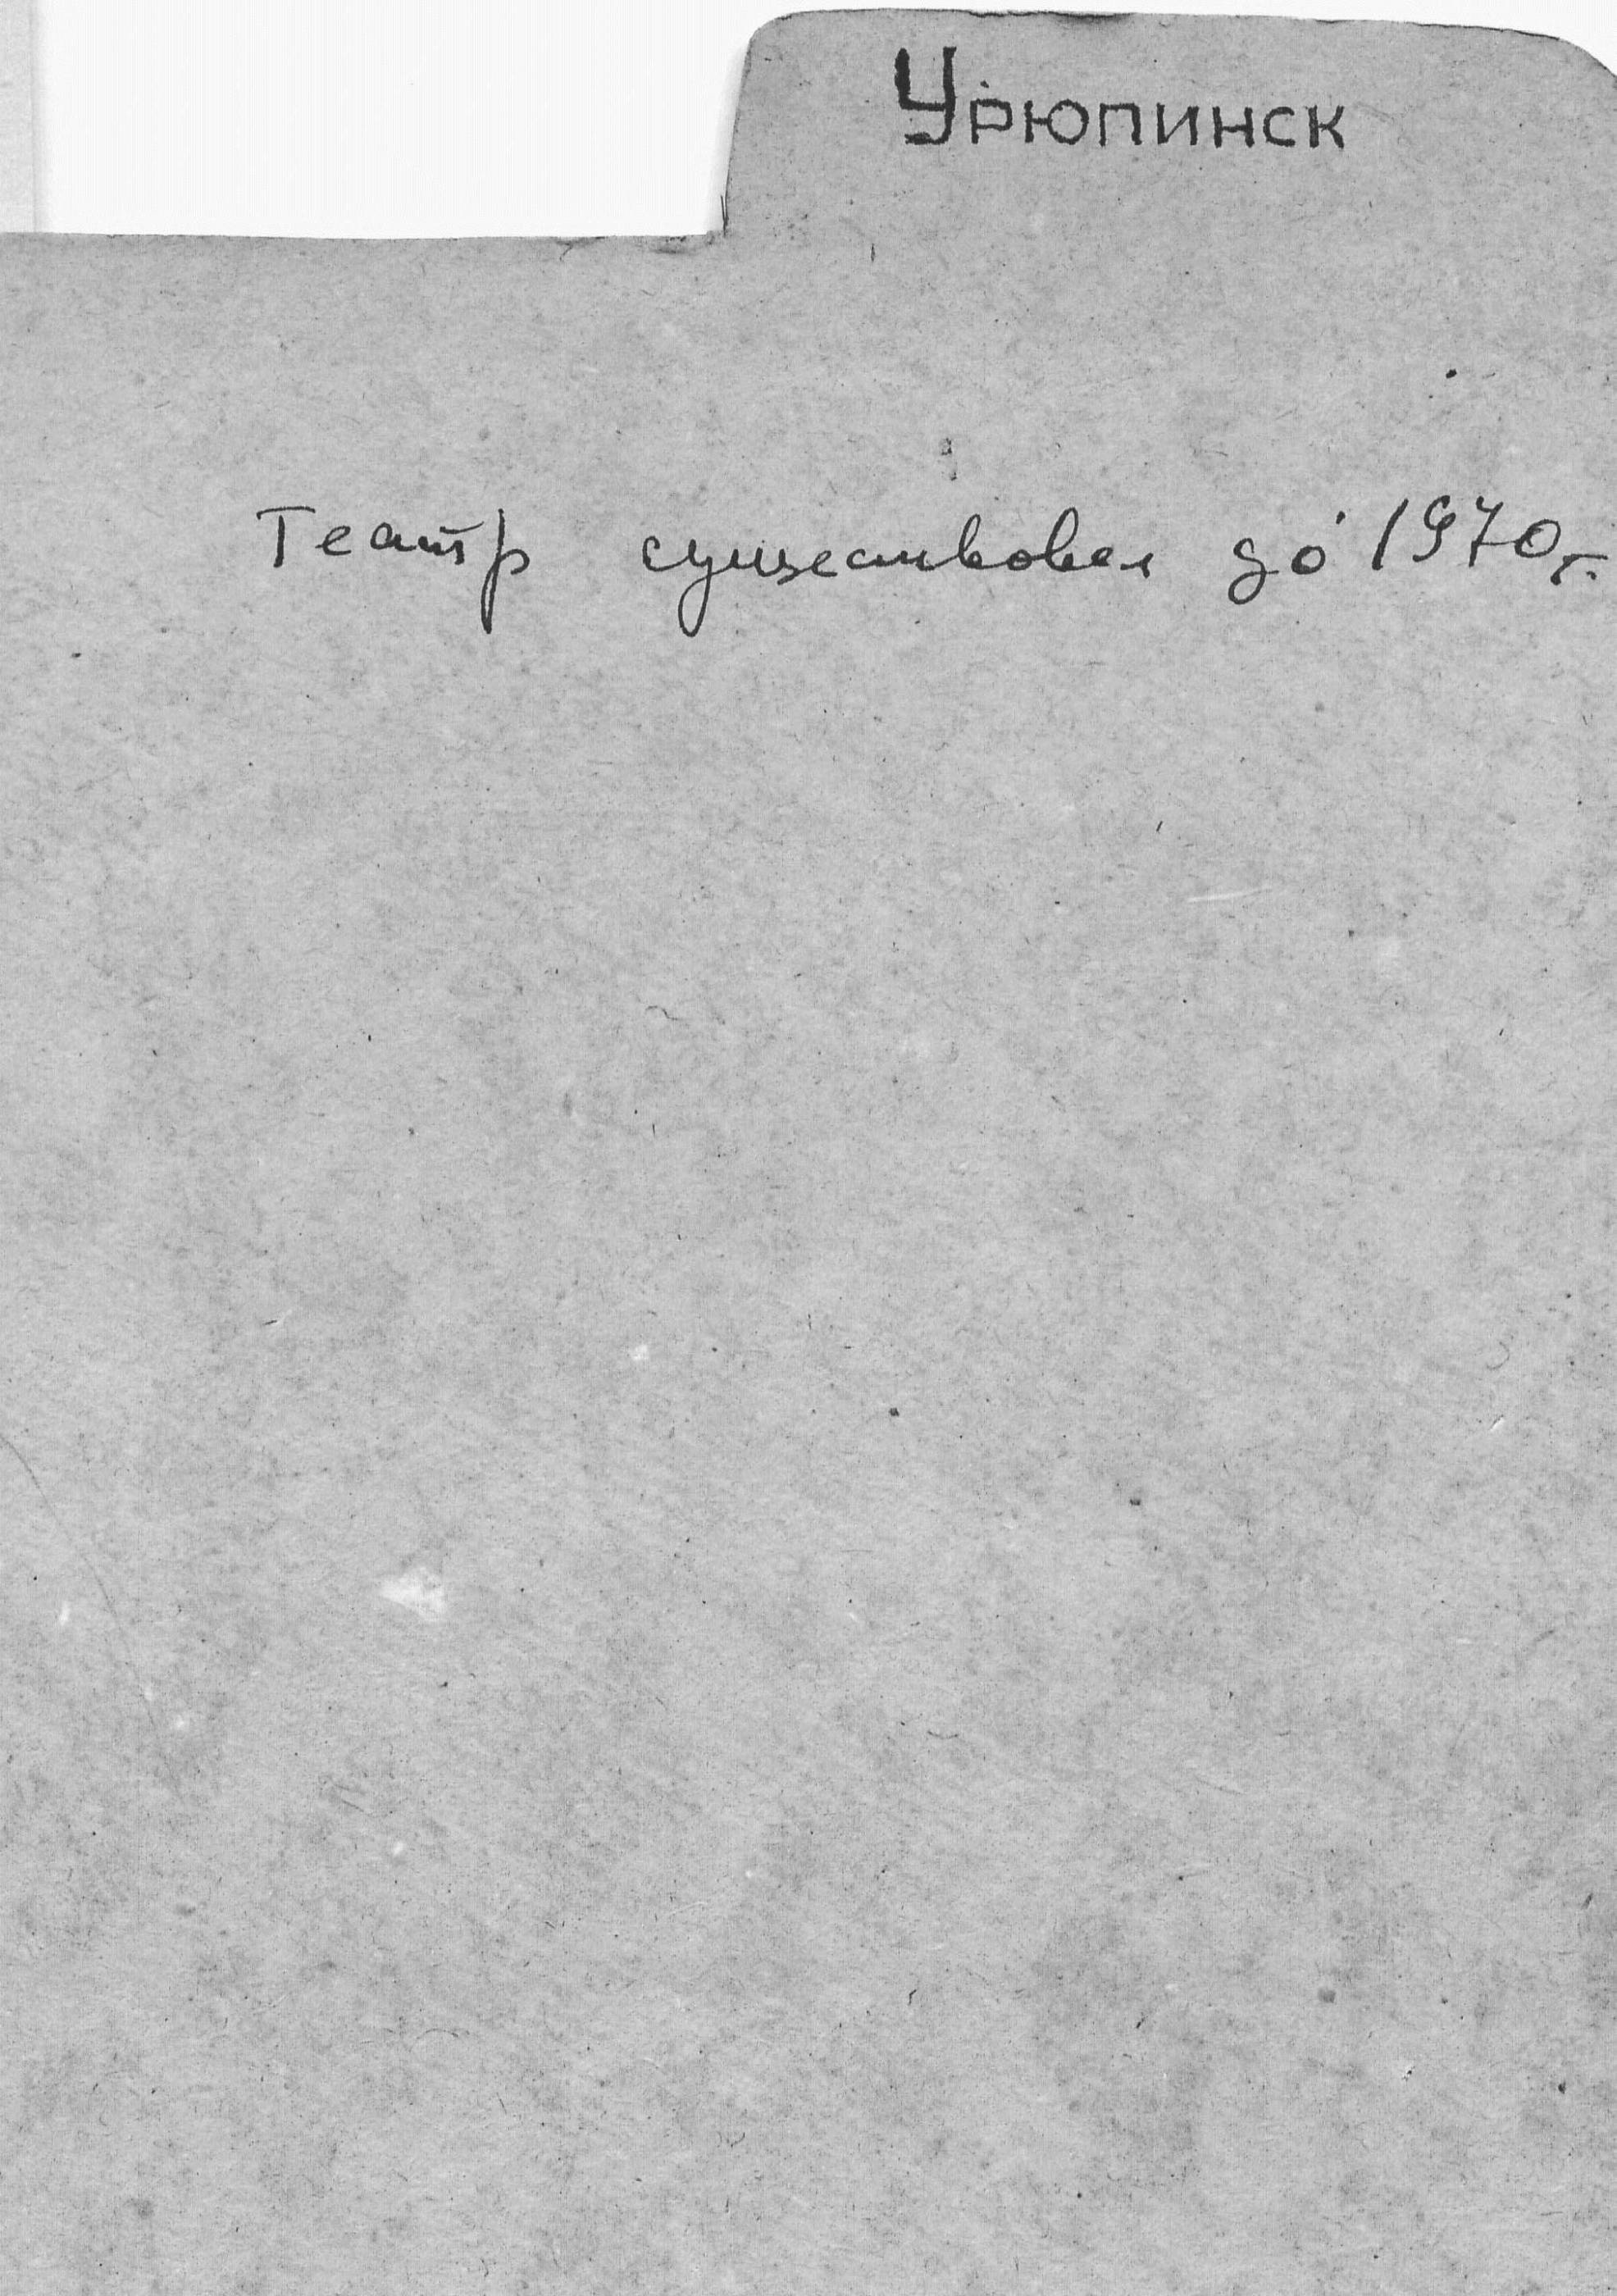 Урюпинск
Театр существовал до 1970 г.